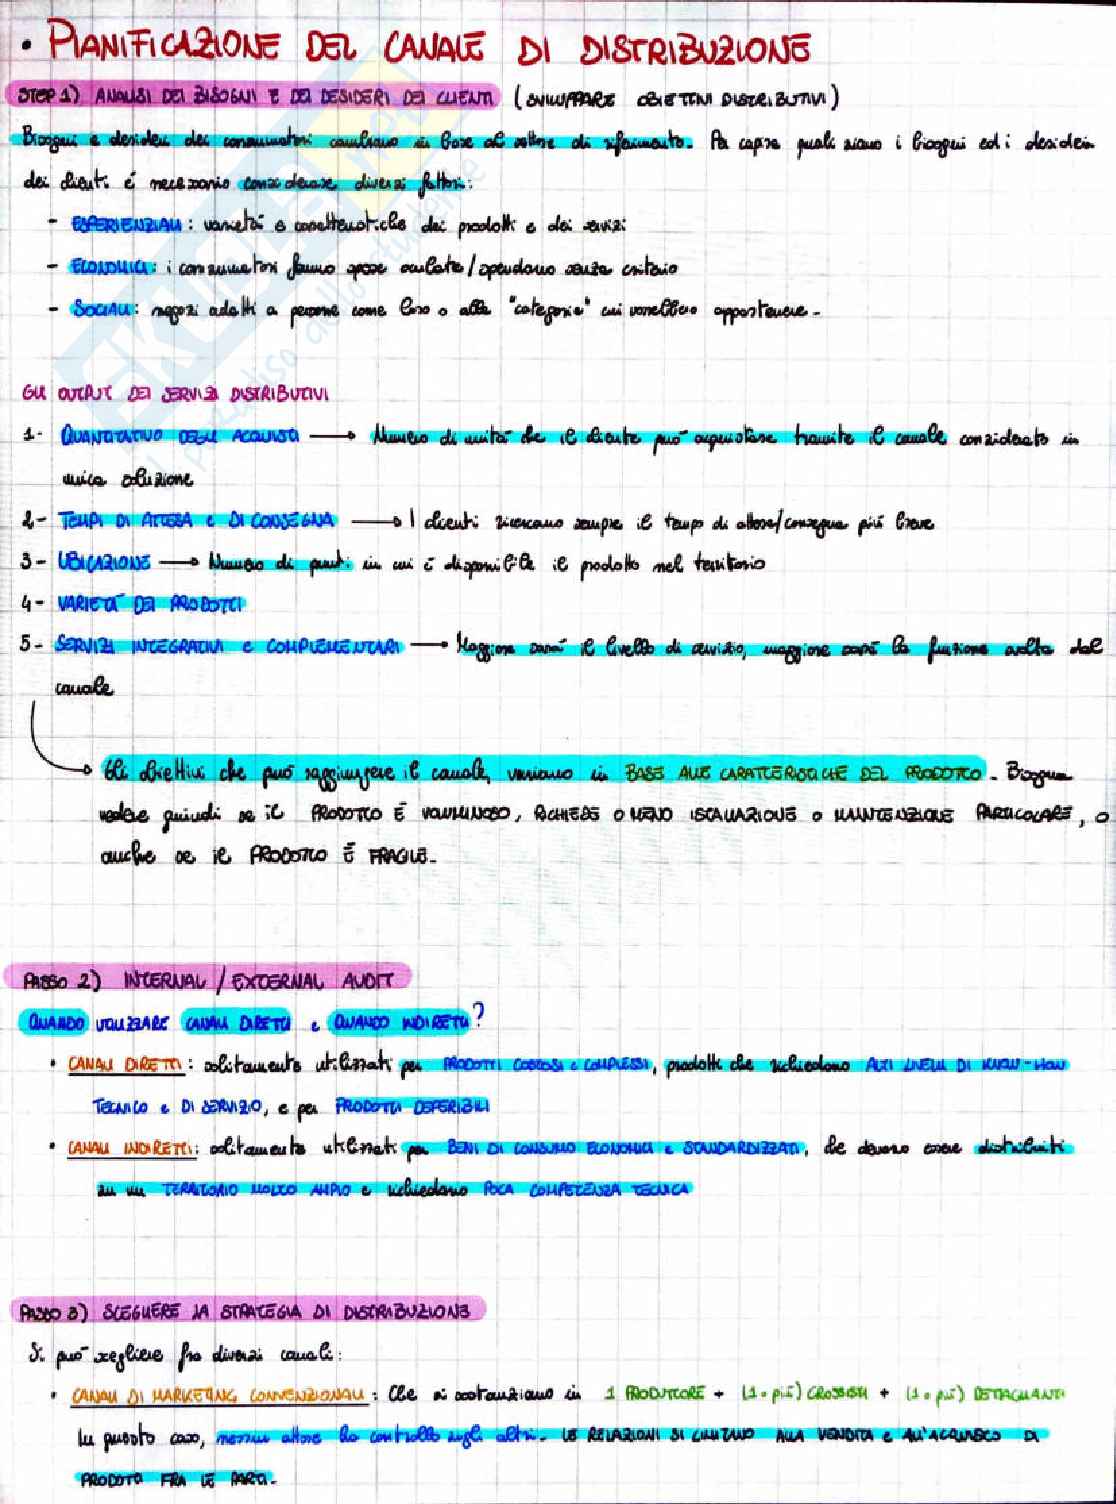 • PIANIFICAZIONE DEL CANALE DI DISTRIBUZIONE
STEP 1) ANALISI DEI BISOGNI E DEI DESIDERI DEI CLIENTI (SVILUPPARE OBIETTIVI DISTRIBUTIVI)
Bisogni e desideri dei consumatori cambiano in base al settore di riferimento. Per capire quali siano i bisogni ed i desideri
dei clienti é necessario considerare diversi fattori:
- ESPERIENZIALI: varietà e caratteristiche dei prodotti e dei servizi
- ECONOMICI: i consumatori fanno spese oculate/spendono senza criterio
- SOCIALI: negozi adatti a persone come loro o alla "categoria" cui vorrebbero appartenere.
GLI OUTPUT DEI SERVIZI DISTRIBUTIVI
1- QUANTITATIVO DEGLI ACQUISTI → Numero di unità che il cliente può acquistare tramite il canale considerato in
unica soluzione
2- TEMPI DI ATTESA E DI CONSEGNA → I clienti ricercano sempre il tempo di attesa/consegna più breve
3- UBICAZIONE → Numero di punti in cui è disponibile il prodotto nel territorio
4- VARIETÀ DEI PRODOTTI
5- SERVIZI INTEGRATIVI E COMPLEMENTARI → Maggiore sarà il livello di servizio, maggiore sarà la funzione svolta dal
canale
→ Gli obiettivi che può raggiungere il canale, variano in BASE ALLE CARATTERISTICHE DEL PRODOTTO. Bisogna
vedere quindi se il PRODOTTO È VOLUMINOSO, RICHIEDE O MENO ISTALLAZIONE O MANUTENZIONE PARTICOLARE, o
anche se il PRODOTTO È FRAGILE.
PASSO 2) INTERNAL / EXTERNAL AUDIT
QUANDO UTILIZZARE CANALI DIRETTI e QUANDO INDIRETTI?
• CANALI DIRETTI: solitamente utilizzati per PRODOTTI COSTOSI e COMPLESSI, prodotti che richiedono ALTI LIVELLI DI KNOW-HOW
TECNICO e DI SERVIZIO, e per PRODOTTI DEPERIBILI
• CANALI INDIRETTI: solitamente utilizzati per BENI DI CONSUMO ECONOMICI e STANDARDIZZATI, che devono essere distribuiti
su un TERRITORIO MOLTO AMPIO e richiedono POCA COMPETENZA TECNICA
PASSO 3) SCEGLIERE LA STRATEGIA DI DISTRIBUZIONE
Si può scegliere fra diversi canali:
• CANALI DI MARKETING CONVENZIONALI: Che si sostanziano in 1 PRODUTTORE + (1 o più) GROSSISTI + (1 o più) DETTAGLIANTI
In questo caso, nessun attore ha controllo sugli altri. LE RELAZIONI SI LIMITANO ALLA VENDITA e ALL'ACQUISTO DI
PRODOTTI FRA LE PARTI.